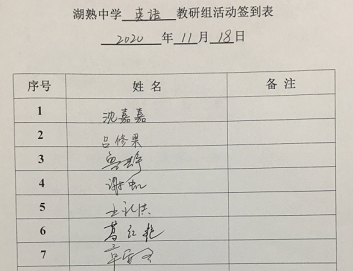 湖熟中学 英语 教研组活动签到表
2020 年 11 月 18 日
序号 姓名 备注
1 沈嘉嘉
2 吕修果
3
4 谢虹
5
6 葛红艳
7